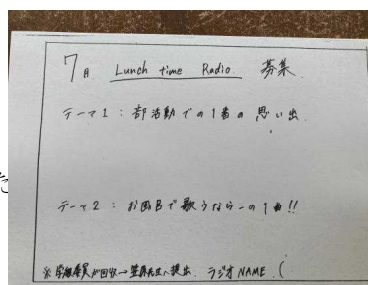 7月 Lunch time Radio 募集
テーマ1：部活動での1番の思い出
テーマ2：お風呂で歌うなら一の1曲!!
※学級委員が回収→笠原先生へ提出. ラジオNAME (